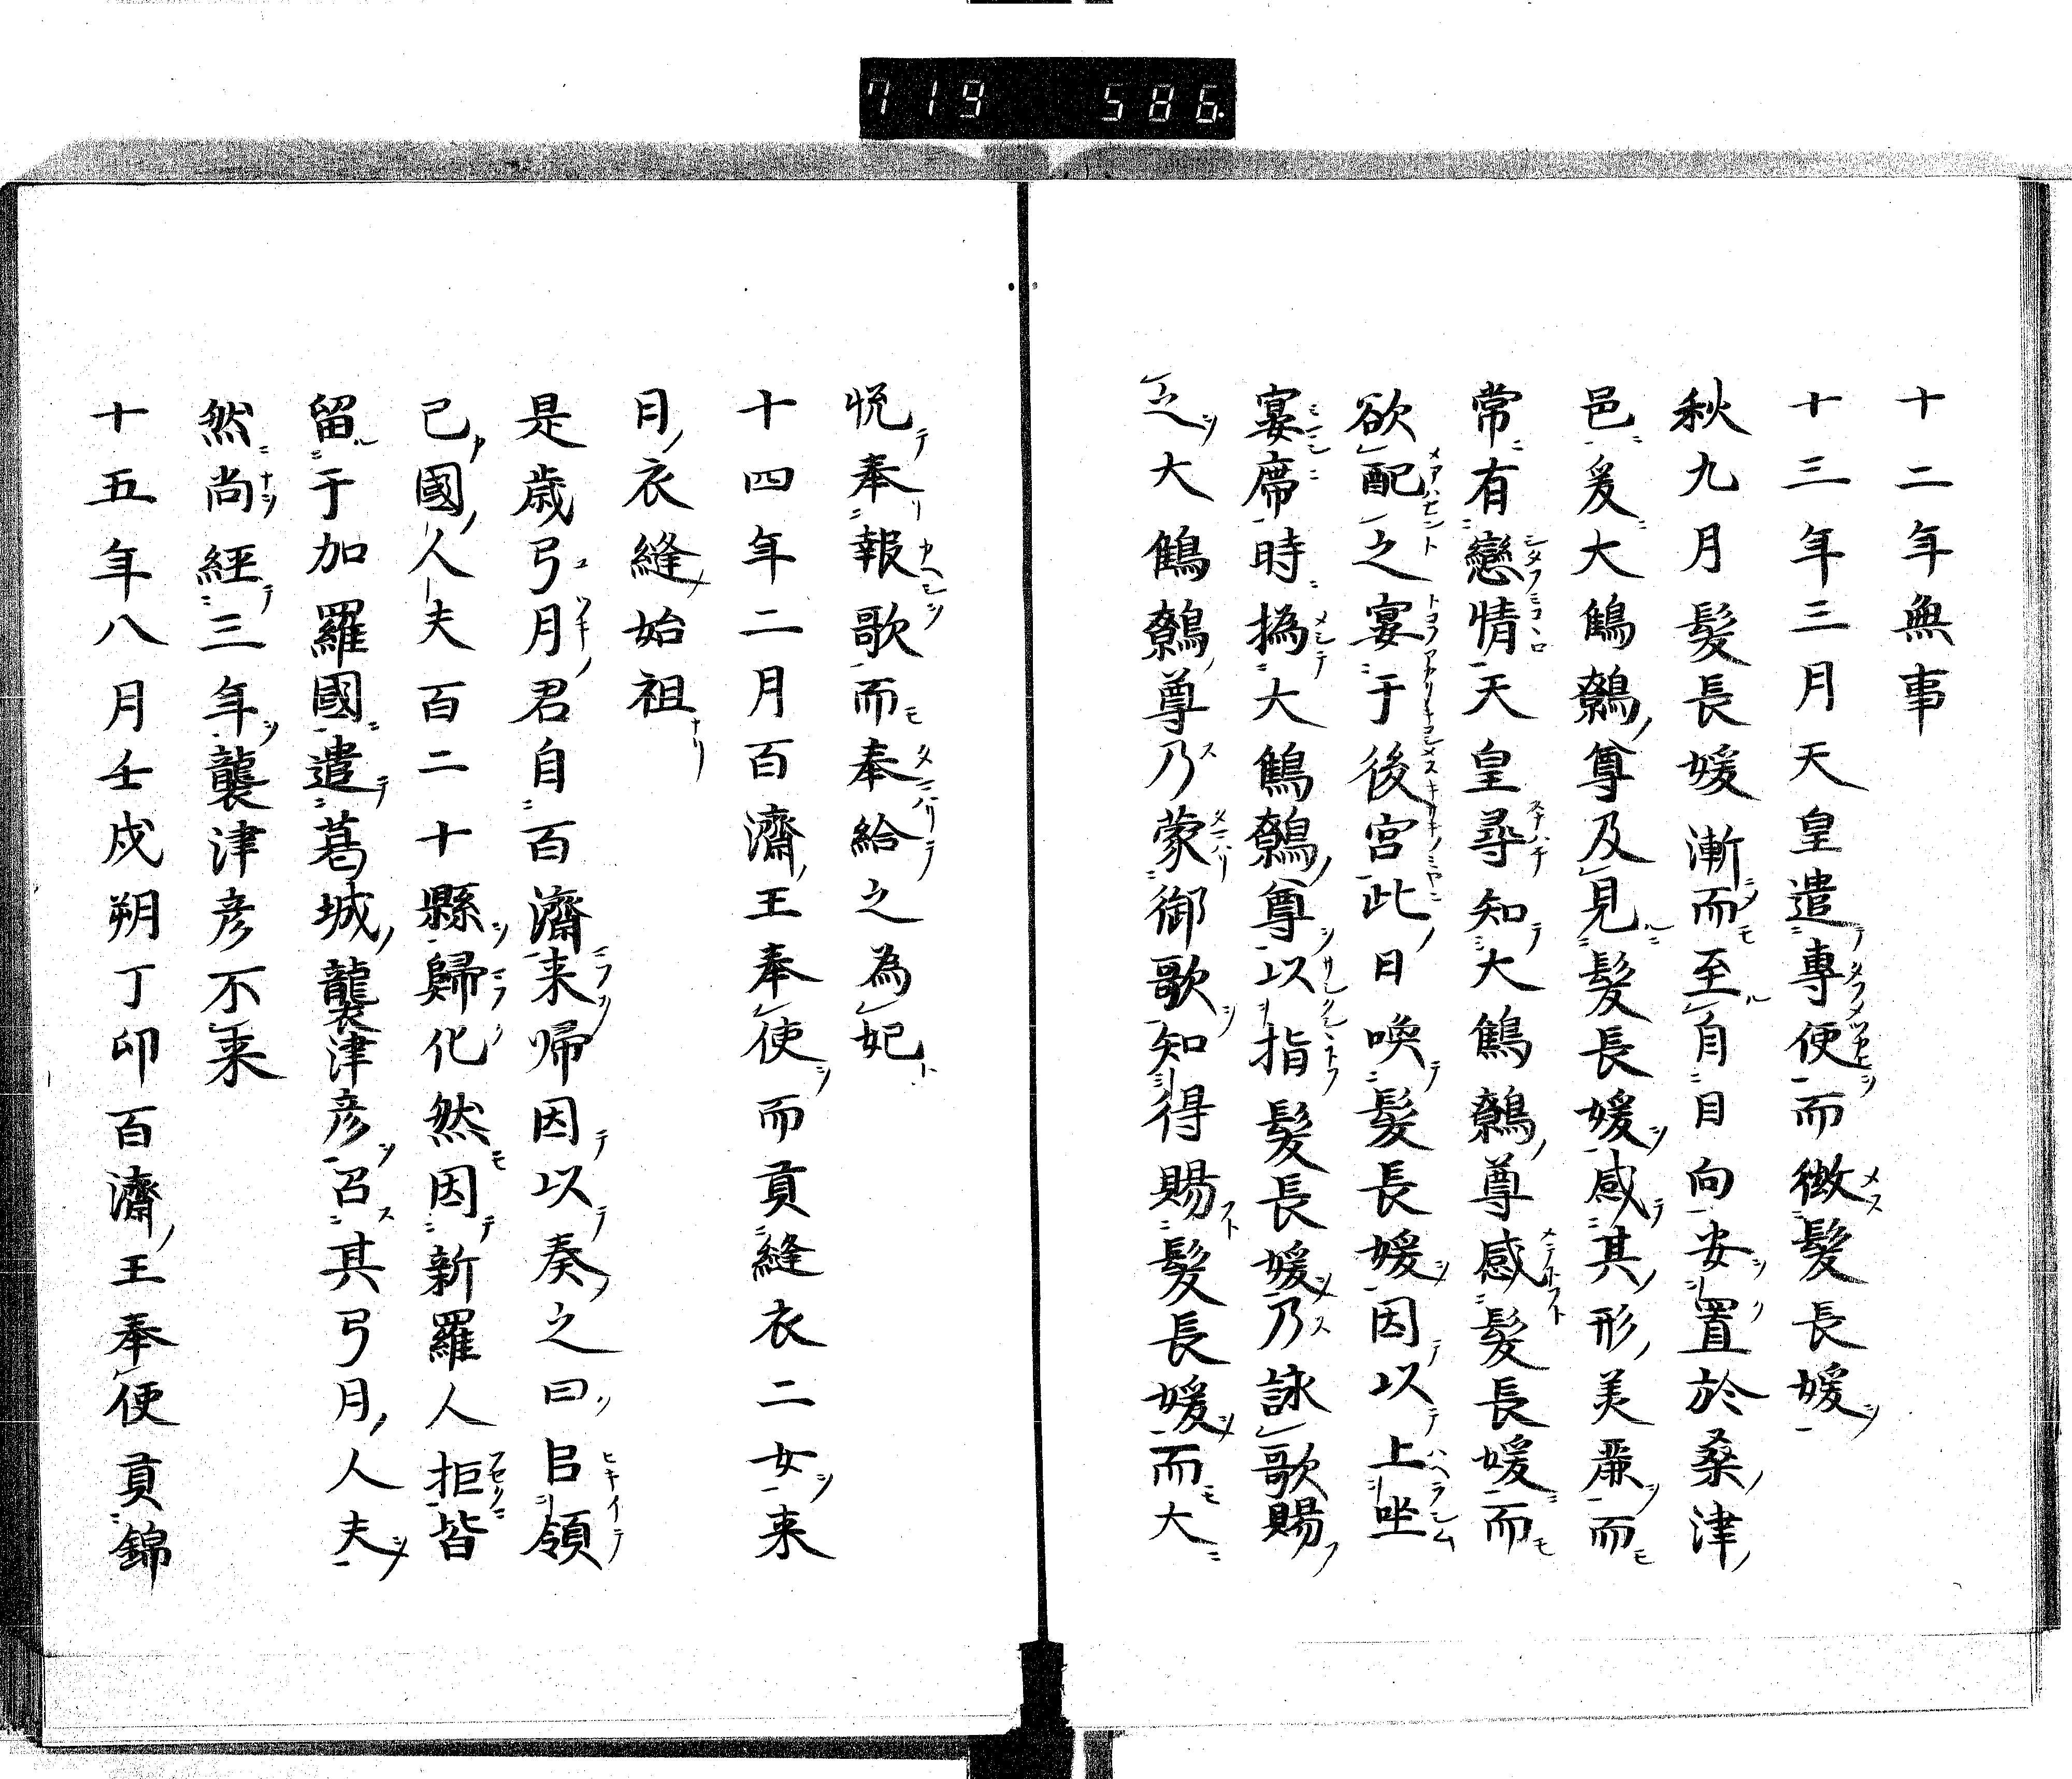 719 586
十二年無事
十三年三月天皇遣專使而徴髮長媛
秋九月髮長媛漸而至自日向安置於桑津
邑爰大鷦鷯尊及見髮長媛感其形美麗而
常有戀情天皇尋知大鷦鷯尊感髮長媛而
欲配之宴于後宮此日喚髮長媛因以上坐
宴席時撝大鷦鷯尊以指髮長媛乃詠歌賜
之大鷦鷯尊乃蒙御歌知得賜髮長媛而大
悦奉報歌而奉給之為妃
十四年二月百濟王奉使而貢縫衣二女来
目衣縫始祖
是歳弓月君自百濟来帰因以奏之曰臣領
己國人夫百二十縣歸化然因新羅人拒皆
留于加羅國遣葛城襲津彦召其弓月人夫
然尚経三年襲津彦不来
十五年八月壬戌朔丁卯百濟王奉使貢錦